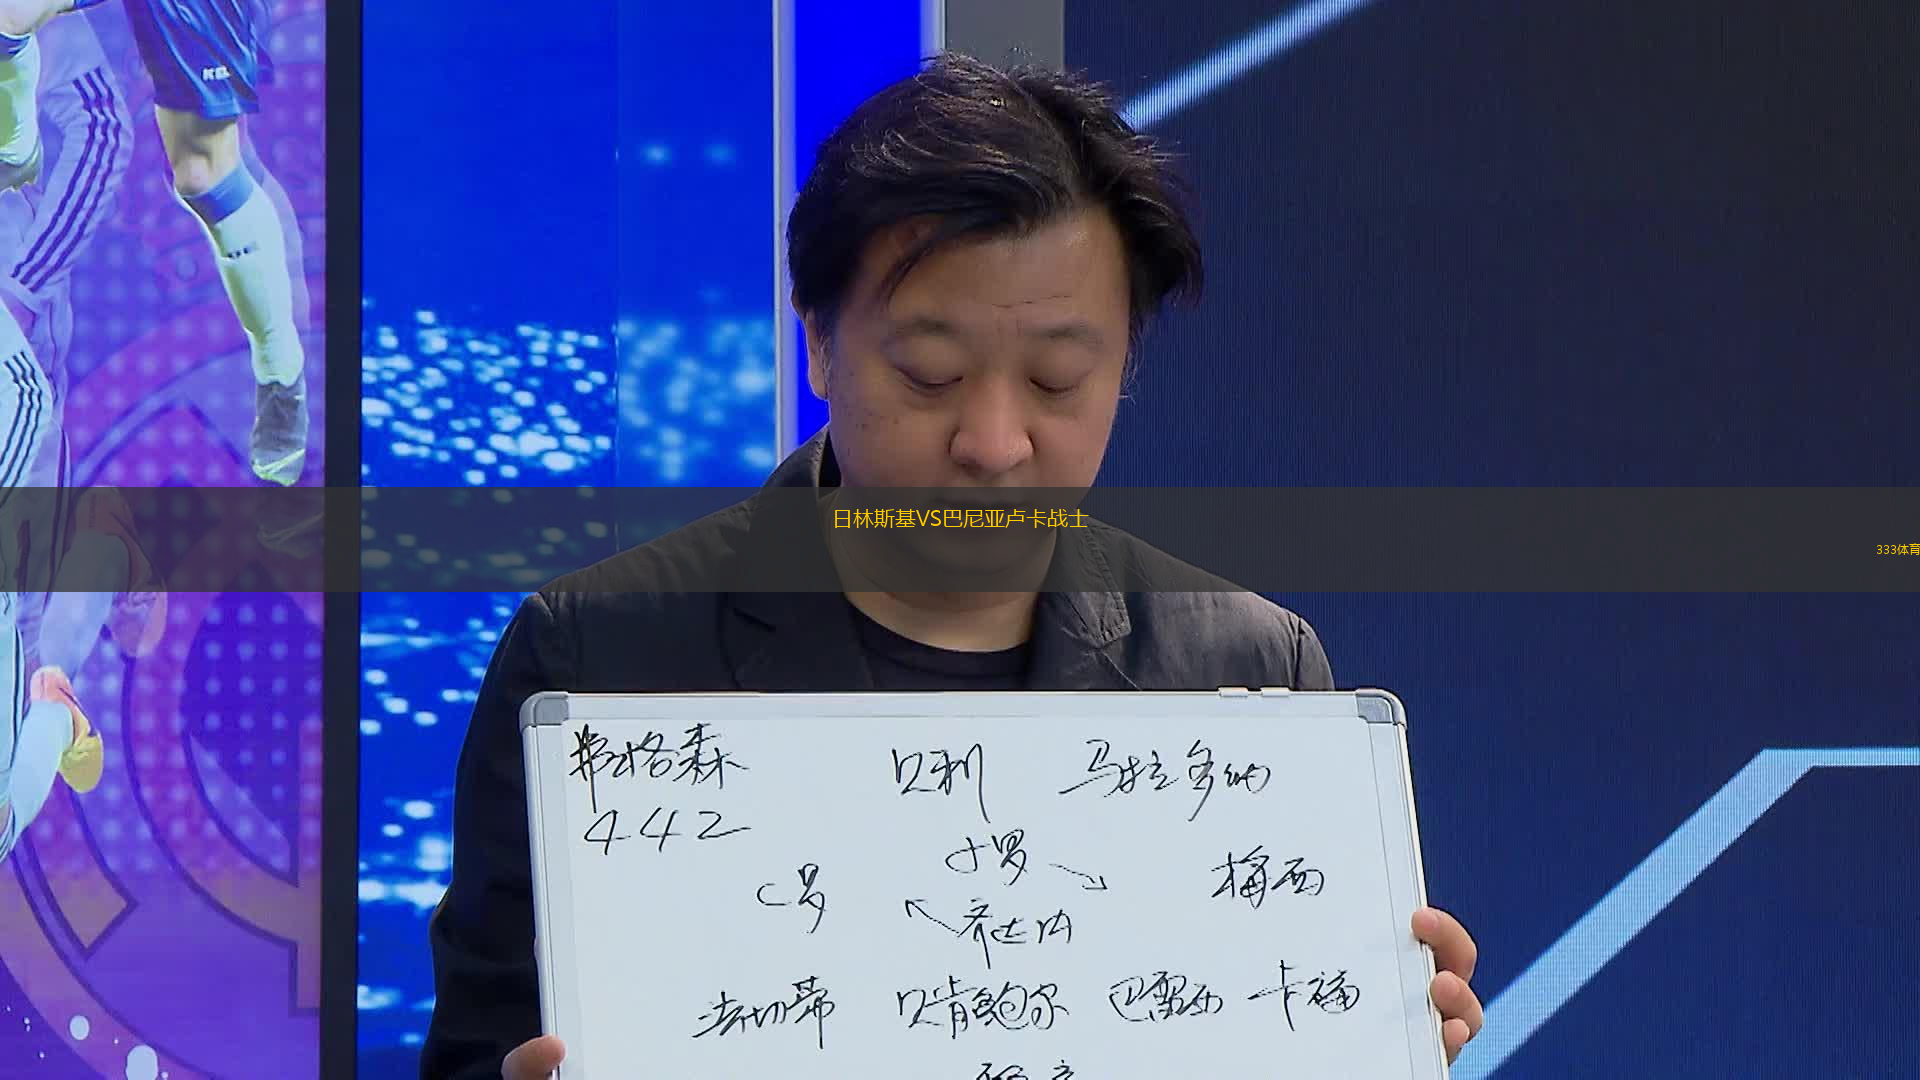 日林斯基VS巴尼亚卢卡战士
333体育
弗格森 贝利 马拉多纳
442
小罗
C罗 梅西
齐达内
法切蒂 贝肯鲍尔 巴雷西 卡福